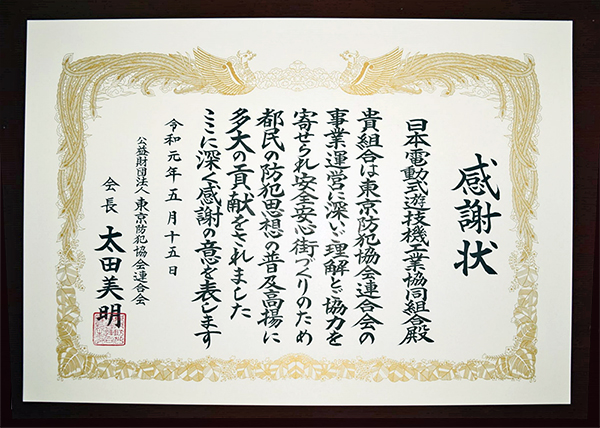 感謝状
日本電動式遊技機工業協同組合殿
貴組合は東京防犯協会連合会の
事業運営に深いご理解とご協力を
寄せられ安全安心街づくりのため
都民の防犯思想の普及高揚に
多大の貢献をされました
ここに深く感謝の意を表します
令和元年五月十五日
公益財団法人東京防犯協会連合会
会長 太田美明